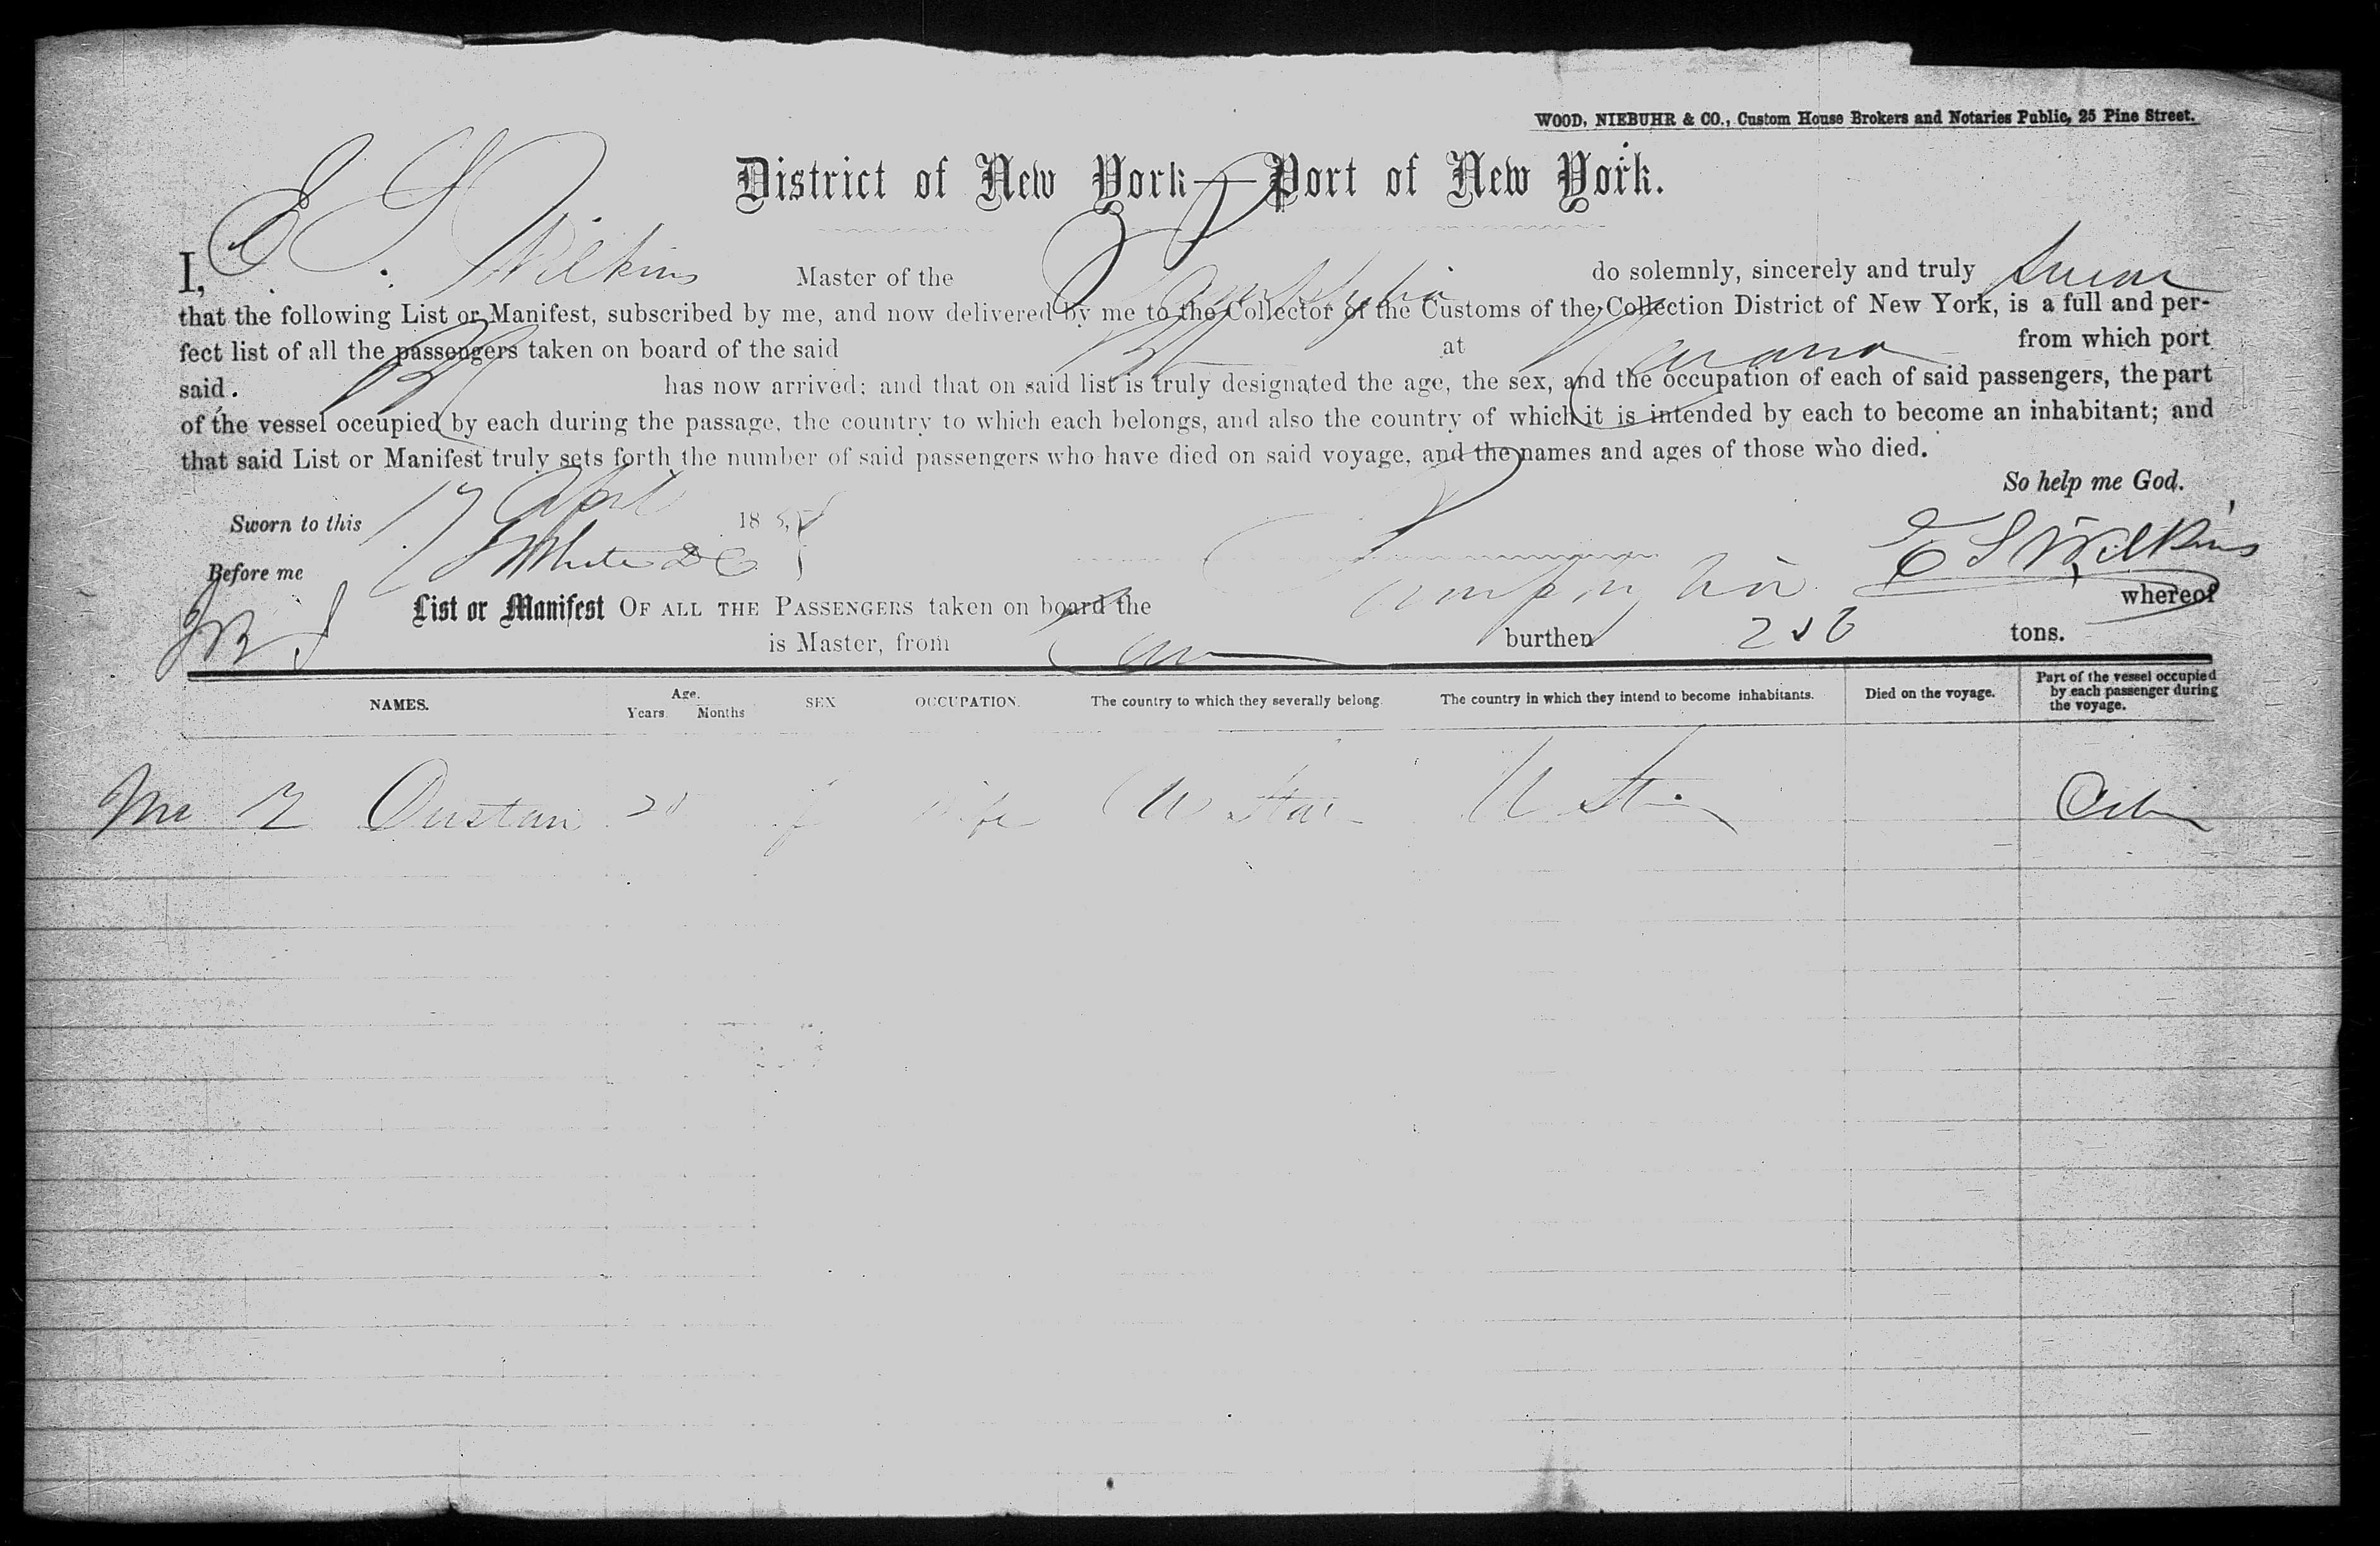 WOOD, NIEBUHR & CO., Custom House Brokers and Notaries Public, 25 Pine Street.
District of New York—Port of New York.
I, E S Wilkins Master of the do solemnly, sincerely and truly swear
that the following List or Manifest, subscribed by me, and now delivered by me to the Collector of the Customs of the Collection District of New York, is a full and per-
fect list of all the passengers taken on board of the said at from which port
said. has now arrived; and that on said list is truly designated the age, the sex, and the occupation of each of said passengers, the part
of the vessel occupied by each during the passage, the country to which each belongs, and also the country of which it is intended by each to become an inhabitant; and
that said List or Manifest truly sets forth the number of said passengers who have died on said voyage, and the names and ages of those who died.
So help me God.
Sworn to this 17 April 18
Before me White DC E S Wilkins
List or Manifest OF ALL THE PASSENGERS taken on board the whereof
is Master, from burthen tons.
NAMES. Age. Years. Months SEX OCCUPATION. The country to which they severally belong. The country in which they intend to become inhabitants. Died on the voyage. Part of the vessel occupied by each passenger during the voyage.
Dustan f Wife U Sta U St